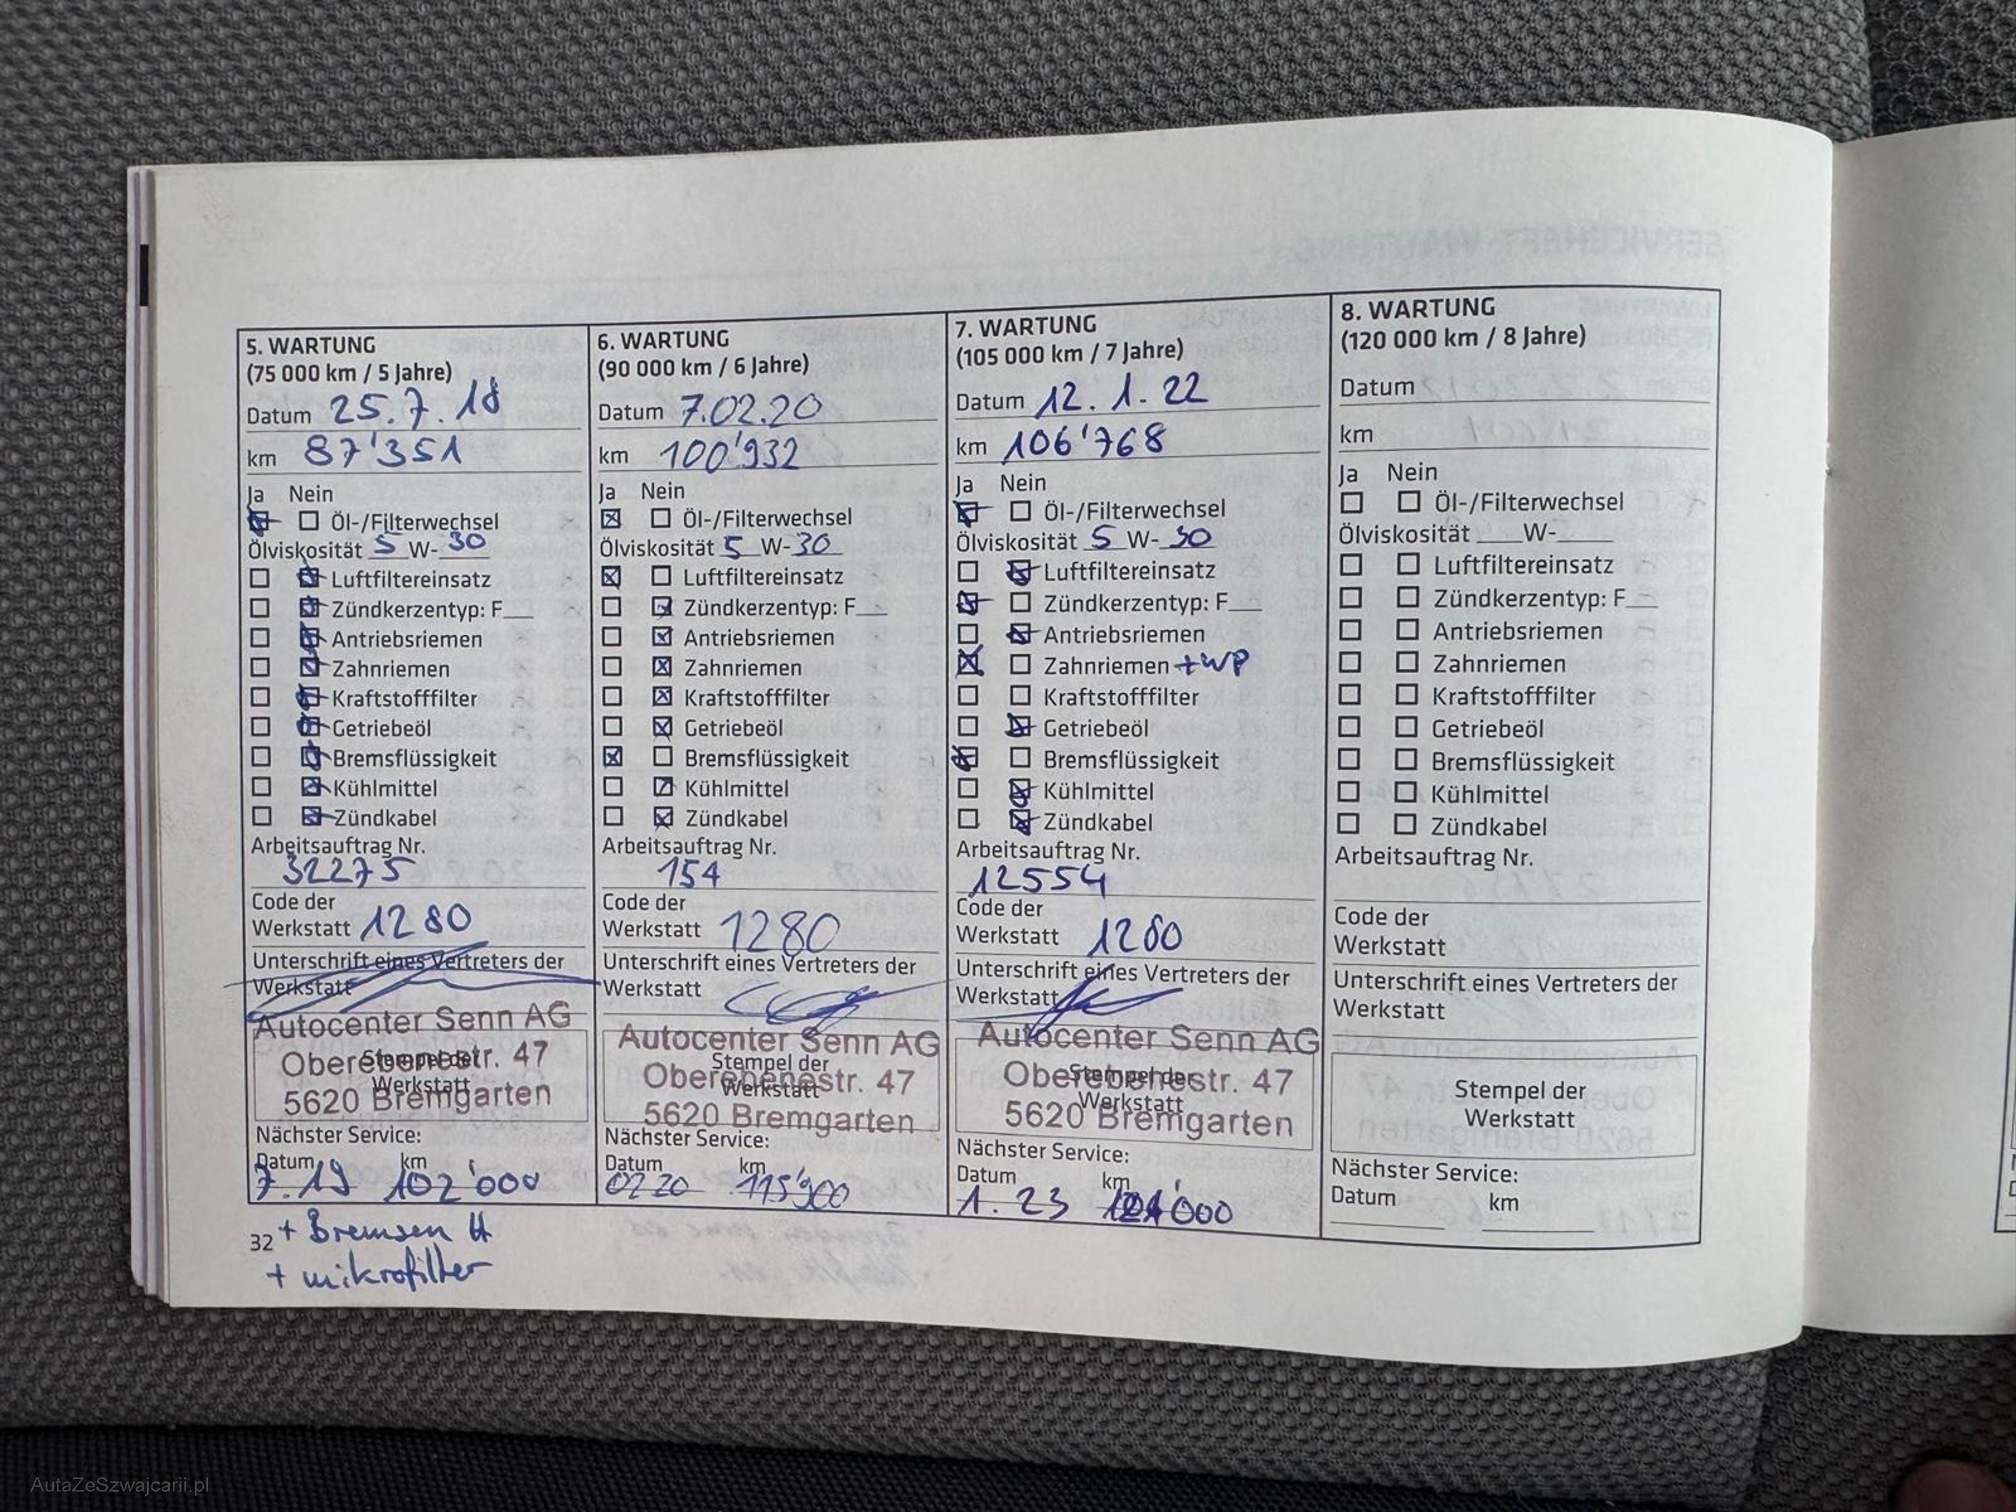 5. WARTUNG
(75 000 km / 5 Jahre)
Datum 25.7.18
km 87'351
Ja Nein
Öl-/Filterwechsel
Ölviskosität 5 W- 30
Luftfiltereinsatz
Zündkerzentyp: F__
Antriebsriemen
Zahnriemen
Kraftstofffilter
Getriebeöl
Bremsflüssigkeit
Kühlmittel
Zündkabel
Arbeitsauftrag Nr.
32275
Code der
Werkstatt 1280
Unterschrift eines Vertreters der
Werkstatt
Autocenter Senn AG
Oberebenestr. 47
5620 Bremgarten
Stempel der
Werkstatt
Nächster Service:
Datum km
7.19 102'000
32 + Bremsen H
+ mikrofilter
6. WARTUNG
(90 000 km / 6 Jahre)
Datum 7.02.20
km 100'932
Ja Nein
Öl-/Filterwechsel
Ölviskosität 5 W- 30
Luftfiltereinsatz
Zündkerzentyp: F__
Antriebsriemen
Zahnriemen
Kraftstofffilter
Getriebeöl
Bremsflüssigkeit
Kühlmittel
Zündkabel
Arbeitsauftrag Nr.
154
Code der
Werkstatt 1280
Unterschrift eines Vertreters der
Werkstatt
Autocenter Senn AG
Oberebenestr. 47
5620 Bremgarten
Stempel der
Werkstatt
Nächster Service:
Datum km
0220 115'900
7. WARTUNG
(105 000 km / 7 Jahre)
Datum 12.1.22
km 106'768
Ja Nein
Öl-/Filterwechsel
Ölviskosität 5 W- 30
Luftfiltereinsatz
Zündkerzentyp: F__
Antriebsriemen
Zahnriemen +WP
Kraftstofffilter
Getriebeöl
Bremsflüssigkeit
Kühlmittel
Zündkabel
Arbeitsauftrag Nr.
12554
Code der
Werkstatt 1280
Unterschrift eines Vertreters der
Werkstatt
Autocenter Senn AG
Oberebenestr. 47
5620 Bremgarten
Stempel der
Werkstatt
Nächster Service:
Datum km
1.23
8. WARTUNG
(120 000 km / 8 Jahre)
Datum
km
Ja Nein
Öl-/Filterwechsel
Ölviskosität ___W-___
Luftfiltereinsatz
Zündkerzentyp: F__
Antriebsriemen
Zahnriemen
Kraftstofffilter
Getriebeöl
Bremsflüssigkeit
Kühlmittel
Zündkabel
Arbeitsauftrag Nr.
Code der
Werkstatt
Unterschrift eines Vertreters der
Werkstatt
Stempel der
Werkstatt
Nächster Service:
Datum km
AutaZeSzwajcarii.pl